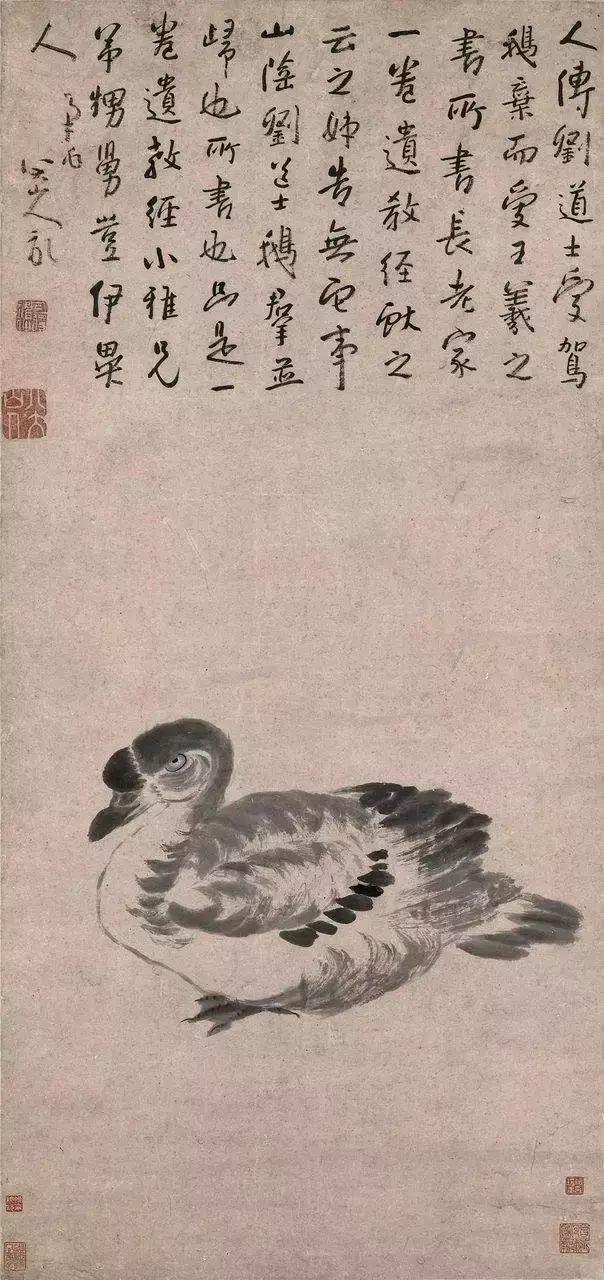 人傳劉道士愛駕
鵝棄而愛王羲之
書所書長老家
一卷遺教經獻之
云之姊告無它事
山陰劉道士鵝羣並
歸也所書也是一
卷遺教經小雅兄
弟甥舅豈伊異
人
八大山人